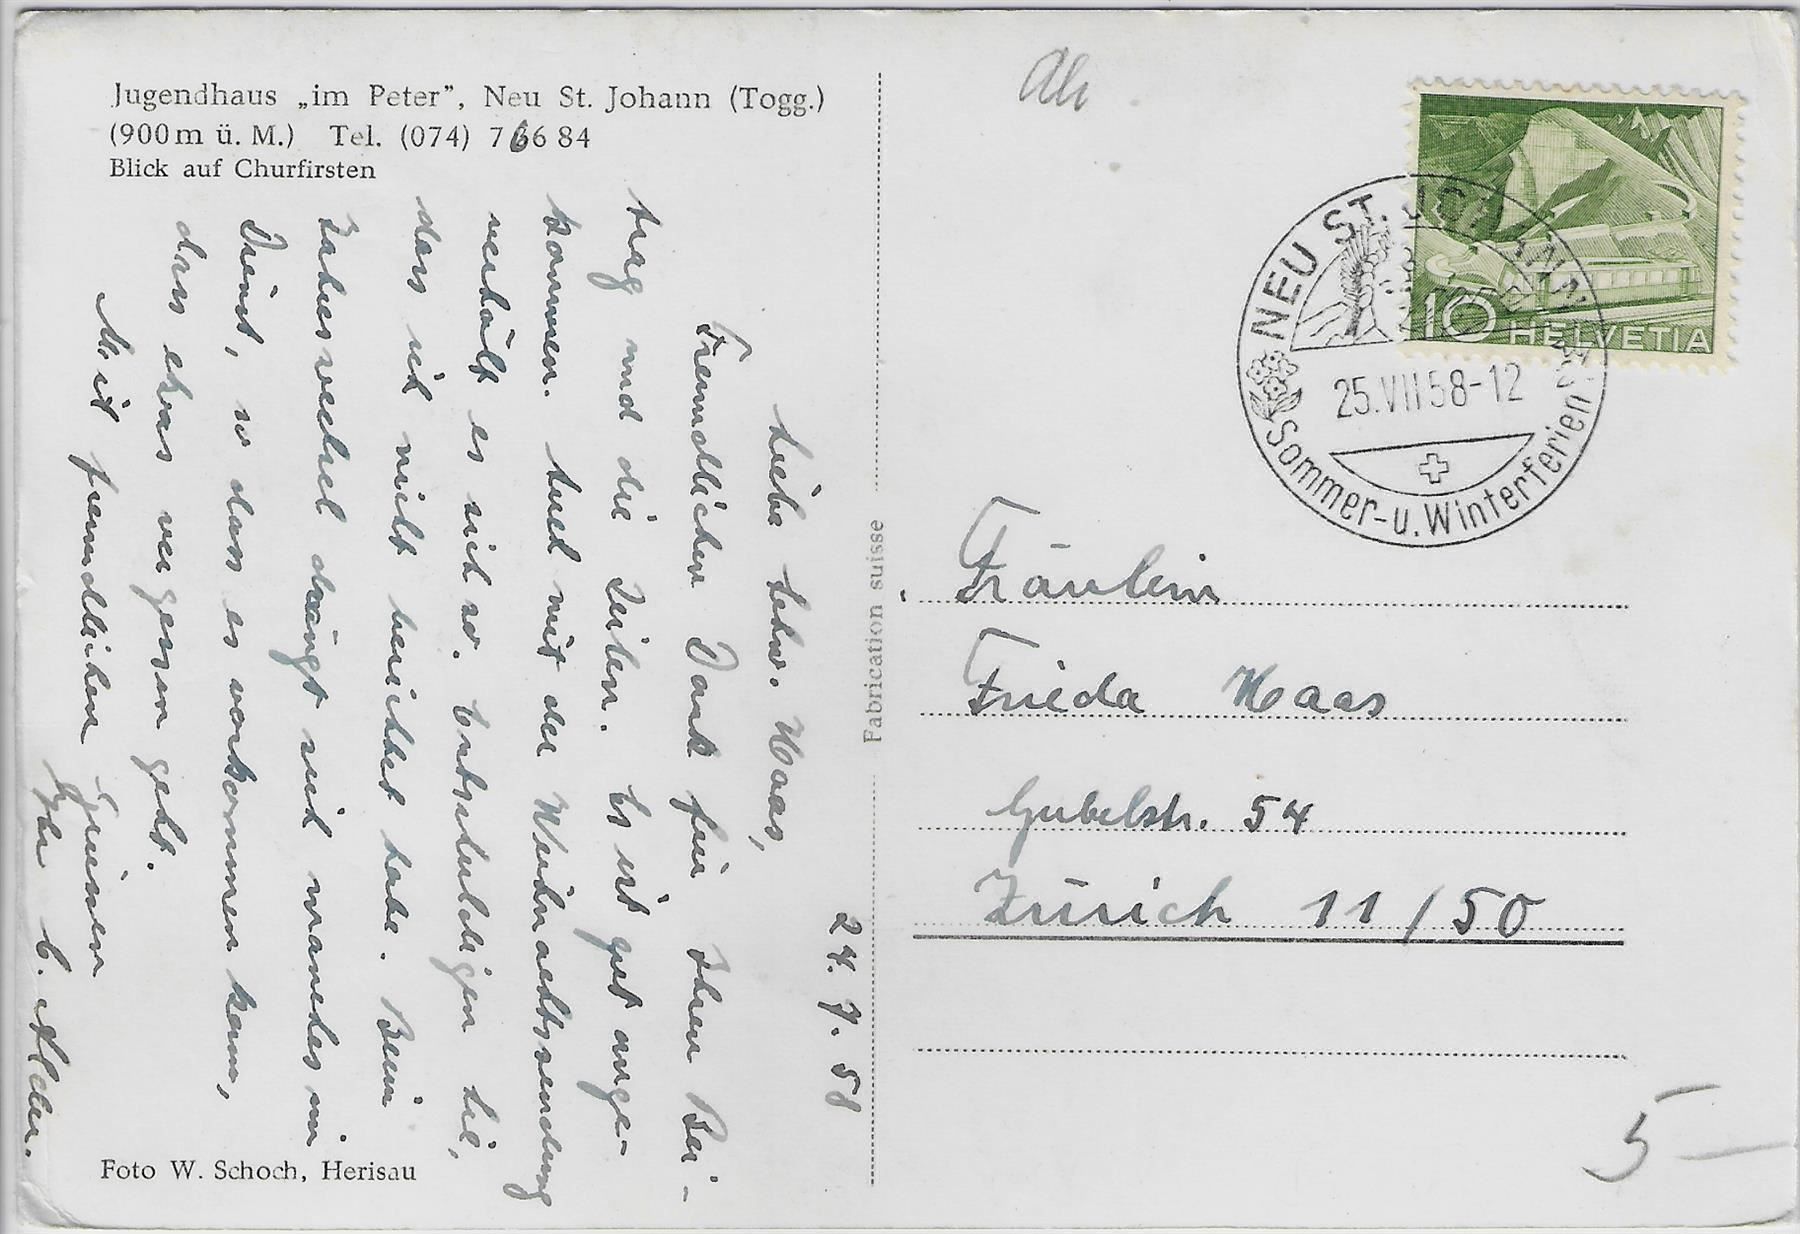 Jugendhaus „im Peter”, Neu St. Johann (Togg.)
(900 m ü. M.) Tel. (074) 7 66 84
Blick auf Churfirsten
24. 7. 58
Liebe Schw. Haas,
Freundlichen Dank für Ihren Bei-
trag und die Zeilen. Es ist gut ange-
kommen. Auch mit der Weihnachtssendung
verhält es sich so. Entschuldigen Sie,
dass ich nicht berichtet habe. Beim
Jahreswechsel drängt sich manches im
Dienst, so dass es vorkommen kann,
dass etwas vergessen geht.
Mit freundlichen Grüssen
Ihr E.
Foto W. Schoch, Herisau
Fabrication suisse
NEU ST. JOHANN
25.VII 58-12
Sommer- u. Winterferien
10 HELVETIA
Fräulein
Frieda Haas
Gubelstr. 54
Zürich 11/50
5—